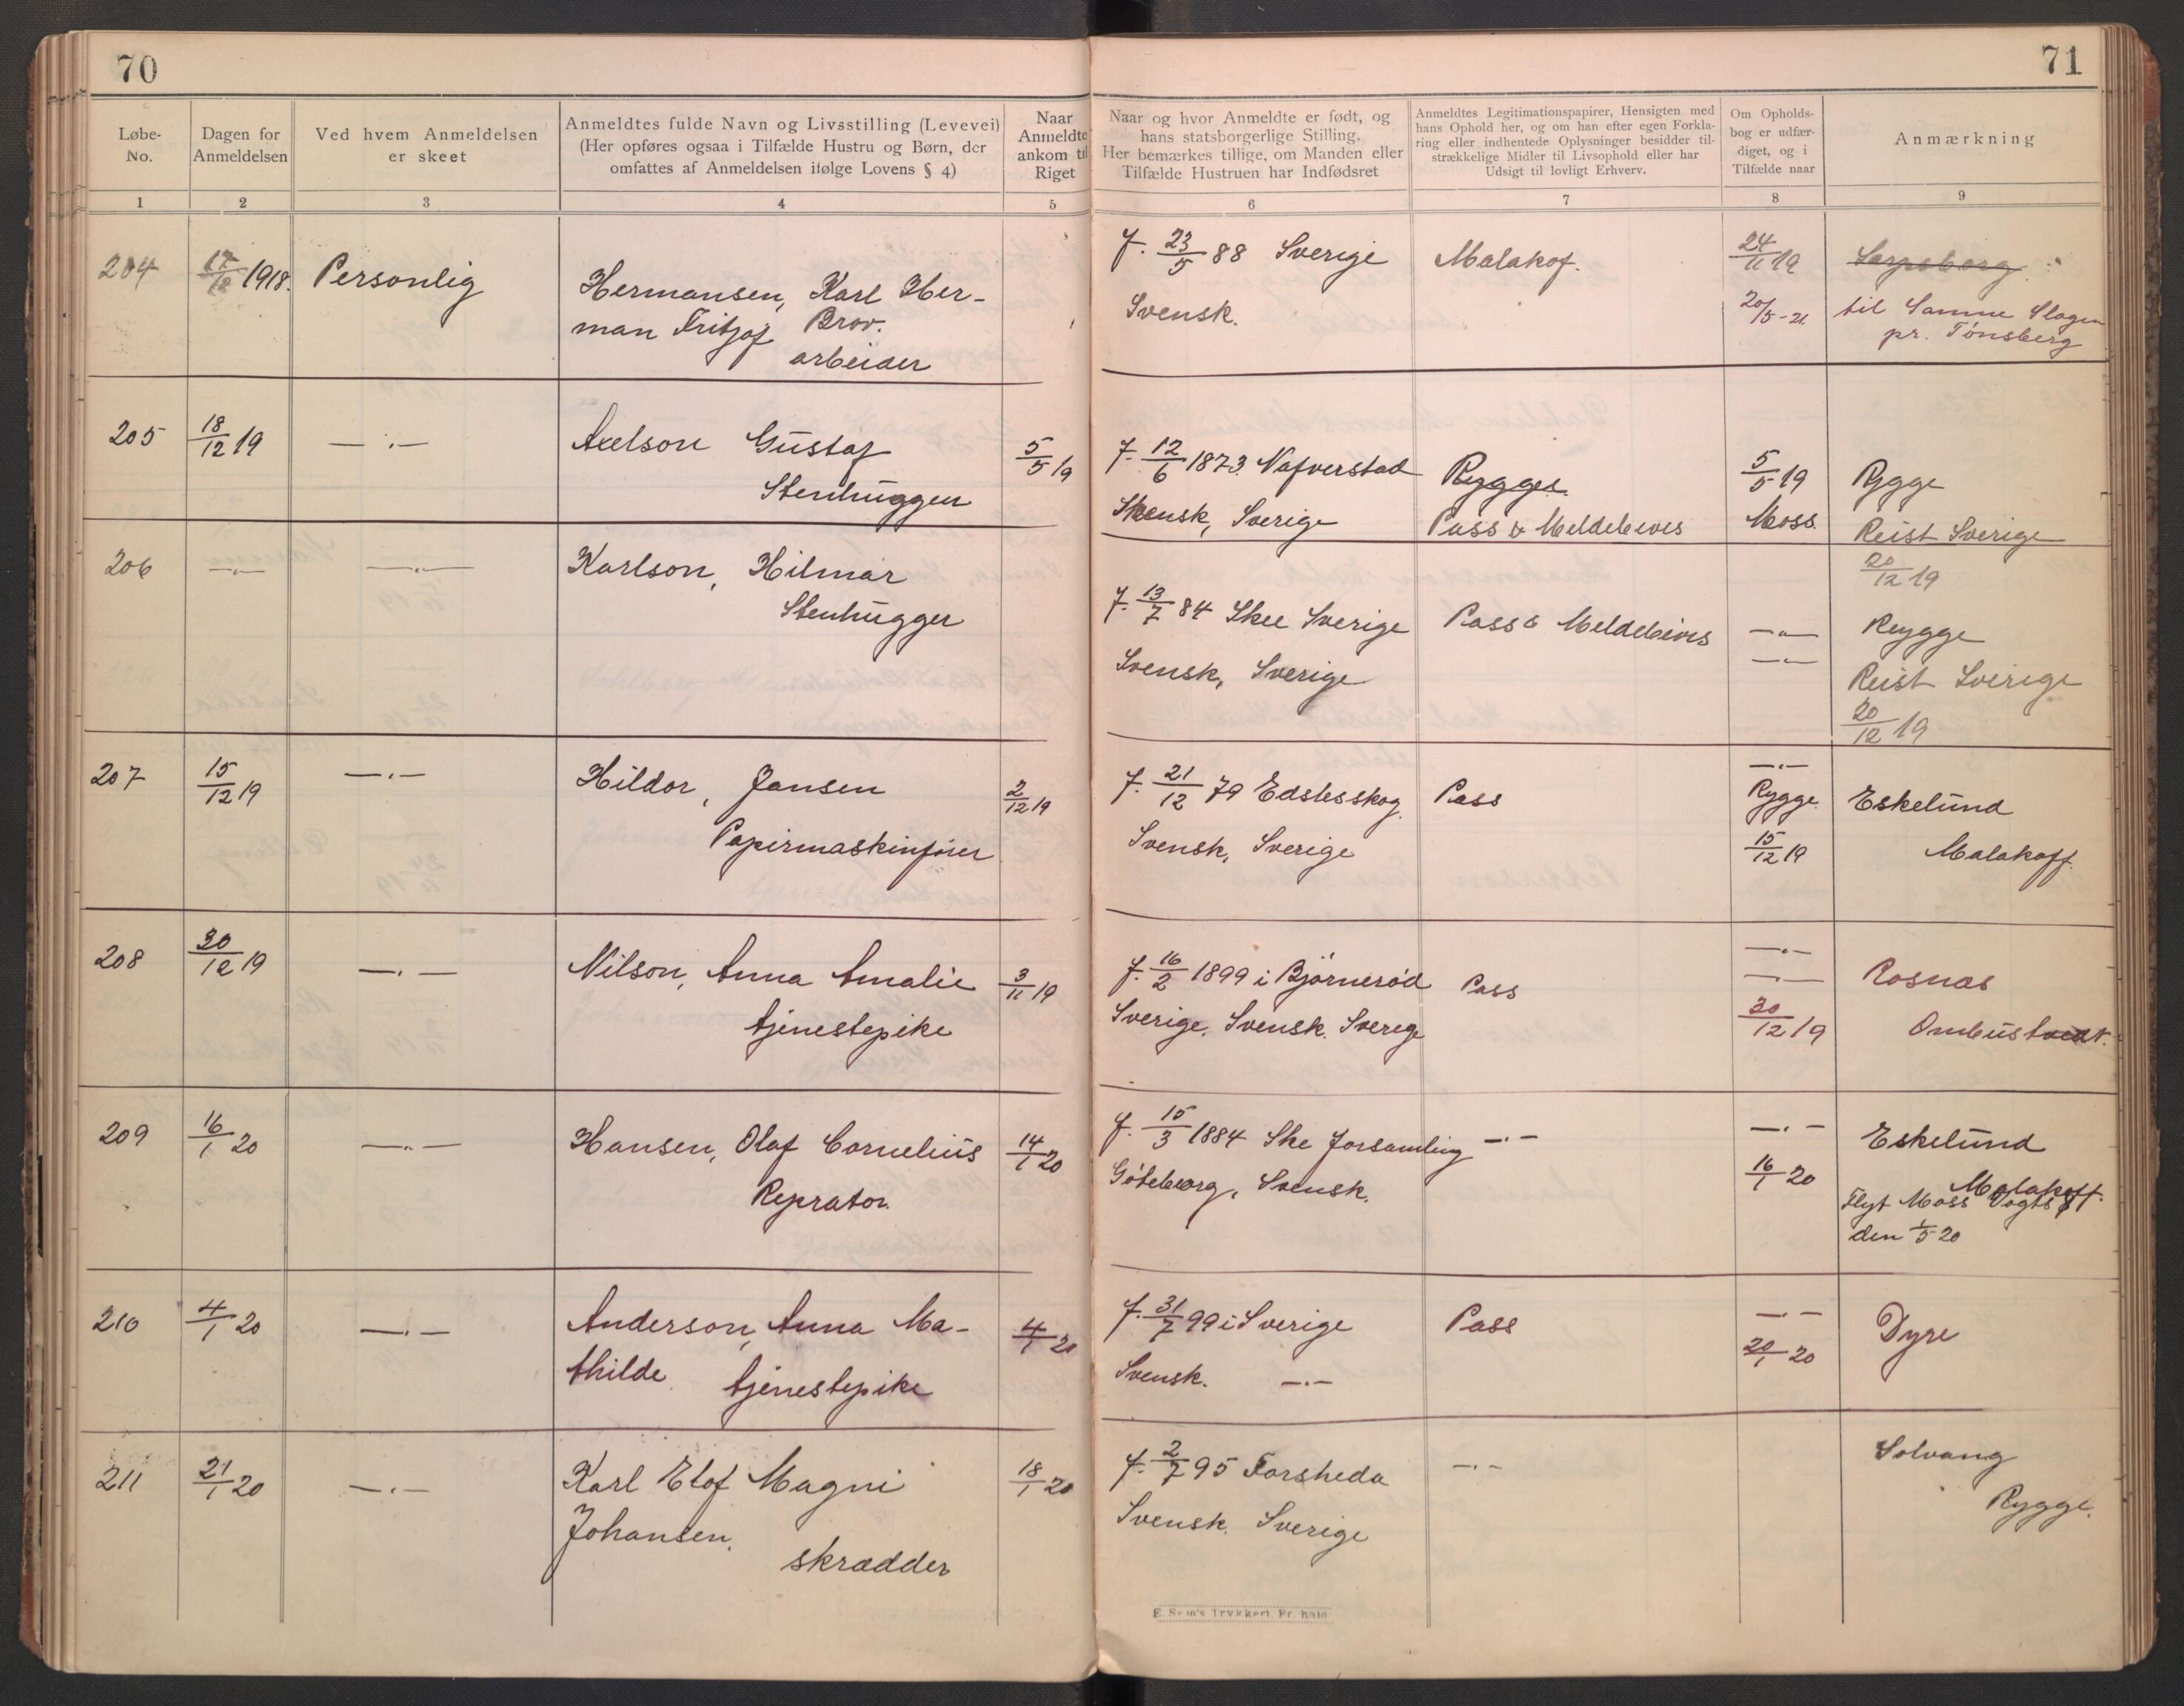 70
71
Løbe-
No.
Dagen for
Anmeldelsen
Ved hvem Anmeldelsen
er skeet
Anmeldtes fulde Navn og Livsstilling (Levevei)
(Her opføres ogsaa i Tilfælde Hustru og Børn, der
omfattes af Anmeldelsen ifølge Lovens § 4)
Naar
Anmeldte
ankom til
Riget
Naar og hvor Anmeldte er født, og
hans statsborgerlige Stilling.
Her bemærkes tillige, om Manden eller
Tilfælde Hustruen har Indfødsret
Anmeldtes Legitimationspapirer, Hensigten med
hans Ophold her, og om han efter egen Forkla-
ring eller indhentede Oplysninger besidder til-
strækkelige Midler til Livsophold eller har
Udsigt til lovligt Erhverv.
Om Opholds-
bog er udfær-
diget, og i
Tilfælde naar
Anmærkning
1 2 3 4 5 6 7 8 9
204
17/12 1918.
Personlig
Hermansen, Karl Her-
man Fritjof Brov.
arbeider
f. 23/5 88 Sverige
Svensk.
Malakof.
24/11 19
20/5-21
Sarpsborg
til Samme Slagen
pr. Tønsberg
205
18/12 19
—·—
Axelson Gustaf
Stenhugger
5/5 19
f. 12/6 1873. Nafverstad
Svensk, Sverige
Rygges
Pass & Meldebevis
5/5 19
Moss
Rygge
Reist Sverige
20/12 19
206
—"—
—"—
Karlson, Hilmar
Stenhugger
f. 13/7 84 Skee Sverige
Svensk, Sverige
Pass & Meldebevis
—"—
—"—
Rygge
Reist Sverige
20/12 19
207
15/12 19
—·—
Hildor, Jansen
Papirmaskinfører
2/12 19
f. 21/12 79 Edslesskog
Svensk, Sverige
Pass
—·—
Rygge
15/12 19
Eskelund
Malakoff.
208
30/12 19
—·—
Nilson, Anna Amalie
tjenestepike
3/11 19
f. 16/2 1899 i Bjørnerød
Sverige. Svensk. Sverige
Pass
—·—
—·—
30/12 19
Rosnæs
209
16/1 20
—"—
Hansen, Olaf Cornelius
Reprator.
14/1 20
f. 15/3 1884 Ske forsamling
Göteborg, Svensk.
—·—
—·—
16/1 20
Eskelund
Malakoff.
Flyt Moss Vogts gt.
den 1/5 20
210
4/1 20
—·—
Anderson, Anna Ma-
thilde tjenestepike
4/1 20
f. 31/7 99 i Sverige
Svensk. —·—
Pass
—·—
20/1 20
Dyre
211
21/1 20
—·—
Karl Elof Magni
Johansen.
skrædder
18/1 20
f. 2/7 95 Forsheda
Svensk. Sverige
—·—
Solvang
Rygge.
E. Sem's Trykkeri, Fr.hald